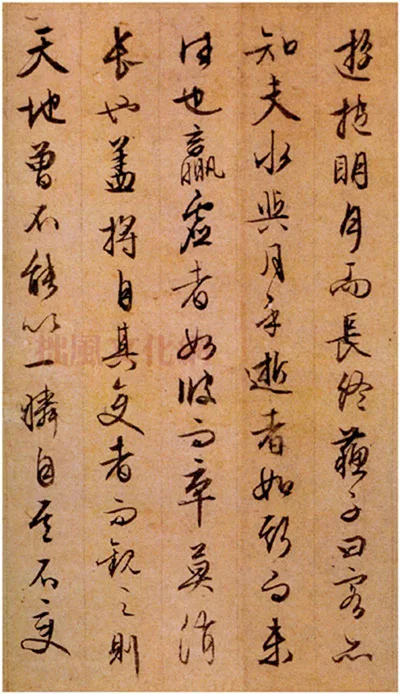 遊抱明月而長終蘓子曰客亦
知夫水與月乎逝者如斯而未
往也贏虛者如彼而卒莫消
長也蓋將自其變者而觀之則
天地曾不能以一瞬自其不變
拙風文化網